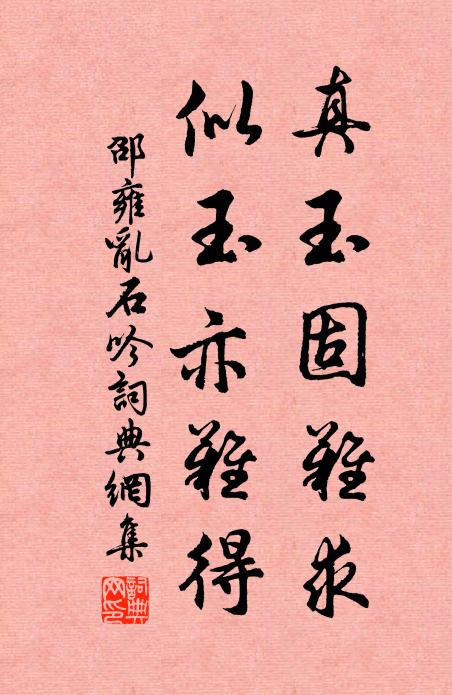 真玉固難求
似玉亦難得
邵雍亂石吟詞典網集
詞典
网印